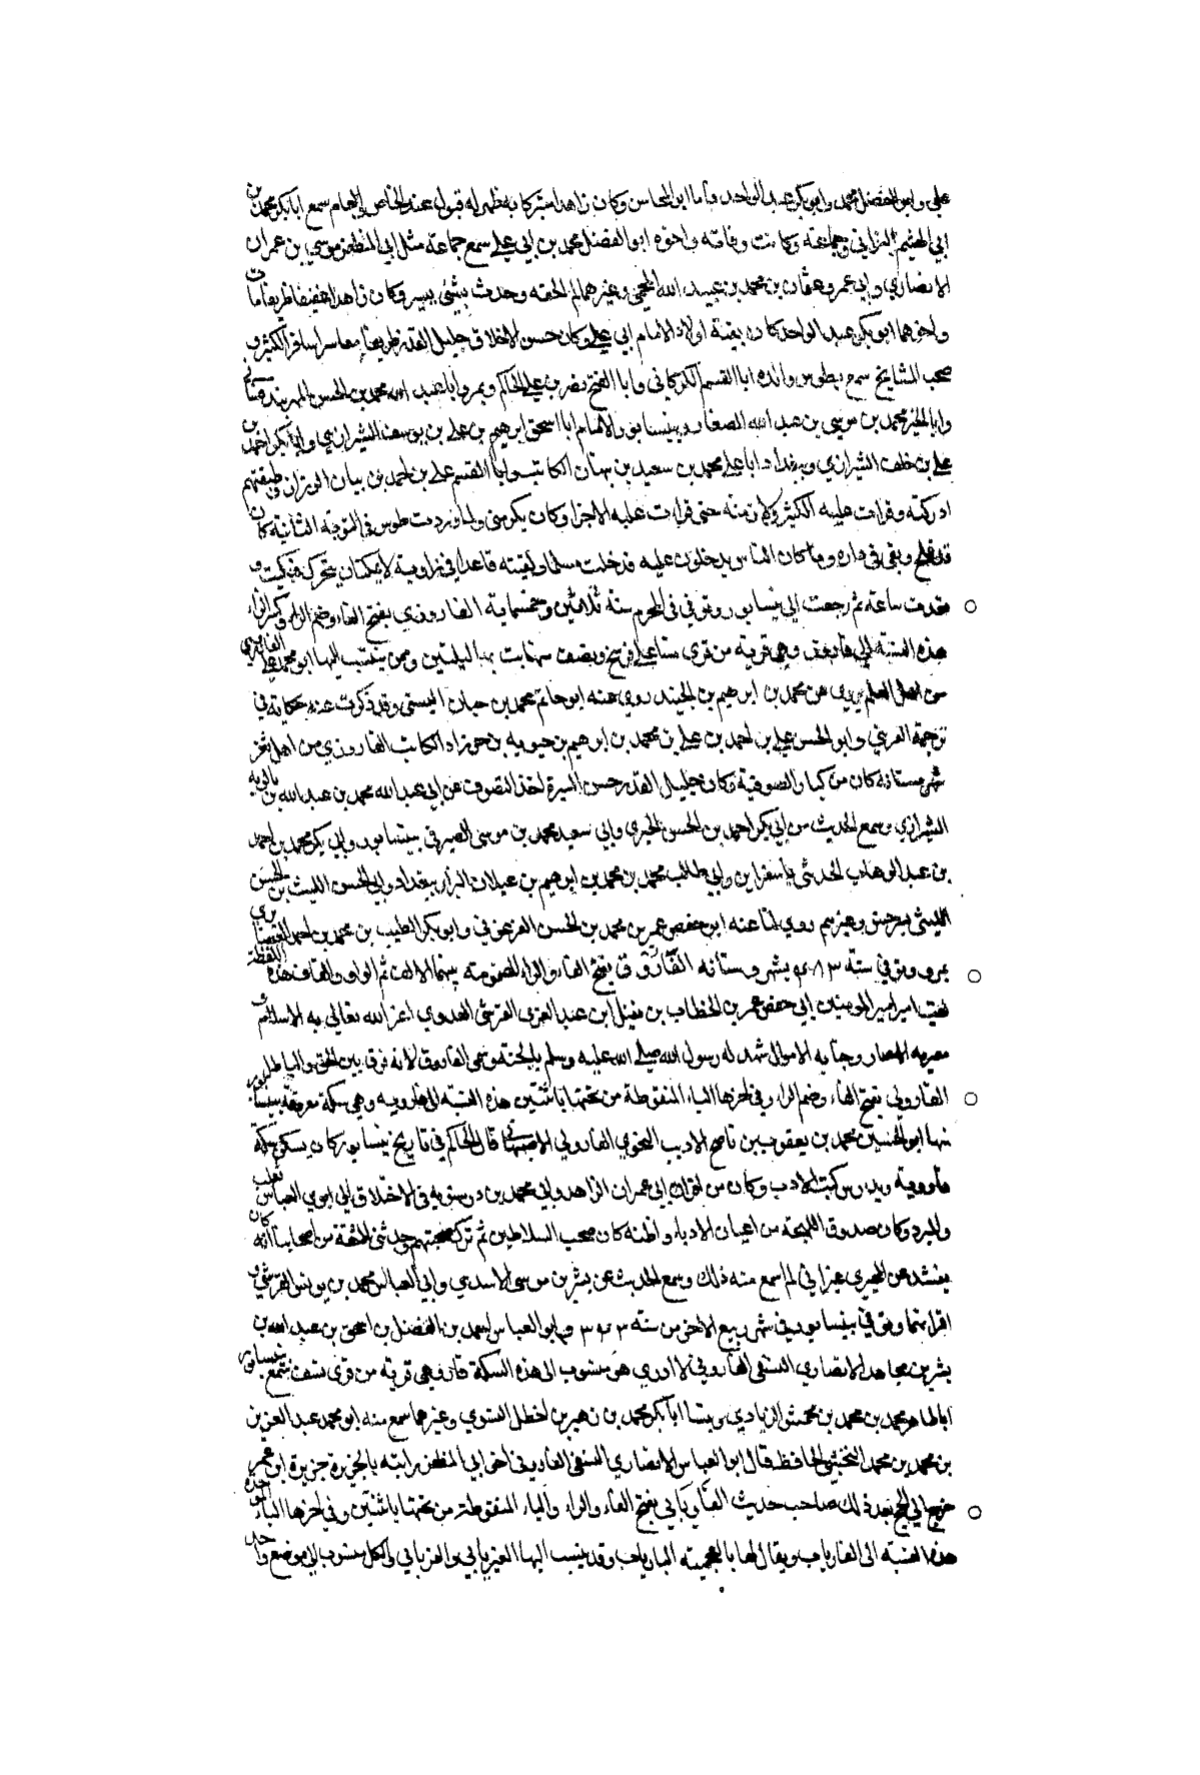 علي وابو الفضل محمد وابو بكر عبد الواحد فاما ابو المحاسن وكان زاهدا متبركا به ظهر له قبول عند الخاص والعام سمع ابا بكر محمد بن
ابي الهيثم الترابي وجماعة وكانت وفاته واخوه ابو الفضل محمد بن ابي علي سمع جماعة مثل ابي المظفر موسى بن عمران
الانصاري وابي عمرو عثمان بن محمد بن عبيد الله المحمي وغيرهما لم الحقه وحدث بشئ يسير وكان زاهدا عفيفا ظريفا مات
واخوهما ابو بكر عبد الواحد كان بقية اولاد الامام ابي علي وكان حسن الاخلاق جليل القدر ظريفا معاسرا سافر الكثير و
صحب المشايخ سمع بطوس والده ابا القسم الكركاني وابا الفتح نصر بن علي الحاكم وبمرو ابا عبد الله محمد بن الحسن المهربندقشائي
وابا الخير محمد بن موسى بن عبد الله الصفار وبنيسابور الامام ابا اسحق ابرهيم بن علي بن يوسف الشيرازي وابا بكر احمد بن
علي بن خلف الشيرازي وببغداد ابا علي محمد بن سعيد بن نبهان الكاتب وابا القسم علي بن احمد بن بيان الرزاز وطبقتهم
ادركته وقرات عليه الكثير ولازمته حتى قرات عليه الاجزا وكان يكرمني ولما وردت طوس في التوجه الثانية كان
قد فلج وبقي في داره وما كان الناس يدخلون عليه فدخلت مسلما ولقيته قاعدا في زاوية لا يمكنه ان يتحرك فبكيت و
قعدت ساعة ثم رجعت الى نيسابور وتوفي في المحرم سنة ثلاثين وخمسماية الفاروزي بفتح الفاء وضم الراء وكسر الزاء
هذه النسبة الى فاروز وهي قرية من قرى نسا على فرسخ ونصف بت بها ليلتين وممن ينتسب اليها ابو محمد علي الفاروزي
من اهل العلم يروي عن محمد بن ابرهيم بن الجنيد روى عنه ابو حاتم محمد بن حبان البستي وقد ذكرت عنه حكاية في
ترجمة وابو الحسن علي بن احمد بن علي بن محمد بن ابرهيم بن حيويه بن الكاتب الفاروزي من اهل
شهرستانه كان من كبار الصوفية وكان جليل القدر حسن السيرة اخذ التصوف عن ابي عبد الله محمد بن عبد الله بن باكويه
الشيرازي وسمع الحديث من ابي بكر احمد بن الحسن الحيري وابي سعيد محمد بن موسى الصيرفي بنيسابور وابي بكر محمد بن احمد
بن عبد الوهاب الحديثي باسفراين وابي طالب محمد بن محمد بن ابرهيم بن غيلان البزاز ببغداد وابي الحسن الليث بن الحسن
الليثي بسرخس وغيرهم روى لنا عنه ابو حفص عمر بن محمد بن الحسن الفرغوني وابو بكر الطيب بن محمد بن احمد الغضائري
بمرو وتوفي سنة ٤٨٣ بشهرستانه الفاروق بفتح الفاء والراء المضمومة بينهما الالف ثم الواو والقاف هذه اللفظة
لقب امير المومنين ابي حفص عمر بن الخطاب بن نفيل ابن عبد العزى القرشي العدوي اعز الله تعالى به الاسلام و
مصر به الامصار وجبا به الاموال شهد له رسول الله صلى الله عليه وسلم بالجنة وسمي الفاروق لانه فرق بين الحق والباطل
الفارويي بفتح الفاء وضم الراء وفي اخرها الياء المنقوطة من تحتها باثنتين هذه النسبة الى فارويه وهي سكة معروفة بنيسابور
منها ابو الحسين محمد بن يعقوب بن ناصح الاديب النحوي الفارويي الاصبهاني قال الحاكم في تاريخ نيسابور كان يسكن سكة
فارويه ويدرس كتب الادب وكان من اقران ابي عمران الزاهد وابي محمد بن درستويه في الاختلاف الى ابوي العباس ثعلب
والمبرد وكان صدوق اللهجة من اعيان الادباء واظنه كان صحب السلاطين ثم ترك صحبتهم وحدثني الثقة من اصحابنا انه كان
ينشد عن البحيري غير اني لم اسمع منه ذلك وسمع الحديث عن بشر بن موسى الاسدي وابي العباس محمد بن يونس القرشي و
اقرانهما وتوفي بنيسابور في شهر ربيع الاخر من سنة ٣٤٣ وابو العباس احمد بن الفضل بن اسحق بن عبد الله بن
بشر بن مجاهد الانصاري النسفي الفارويي لا ادري هو منسوب الى هذه السكة او هي قرية من قرى نسف سمع بنيسابور
ابا طاهر محمد بن محمد بن محمش الزيادي وبنسا ابا بكر محمد بن زهير بن اخطل النسوي وغيرهما سمع منه ابو محمد عبد العزيز
بن محمد بن محمد النخشبي الحافظ قال ابو العباس الانصاري النسفي الفارويي اخي ابي المظفر رايته بالجزيرة جزيرة ابن عمر
خرج الى الحج بعد ذلك صاحب حديث الفاريابي بفتح الفاء والراء والياء المنقوطة من تحتها باثنتين وفي اخرها الباء الموحدة
هذه النسبة الى الفارياب ويقال لها بالعجمية البارياب وقد ينسب اليها الفيريابي والفريابي والكل منسوب الى موضع واحد